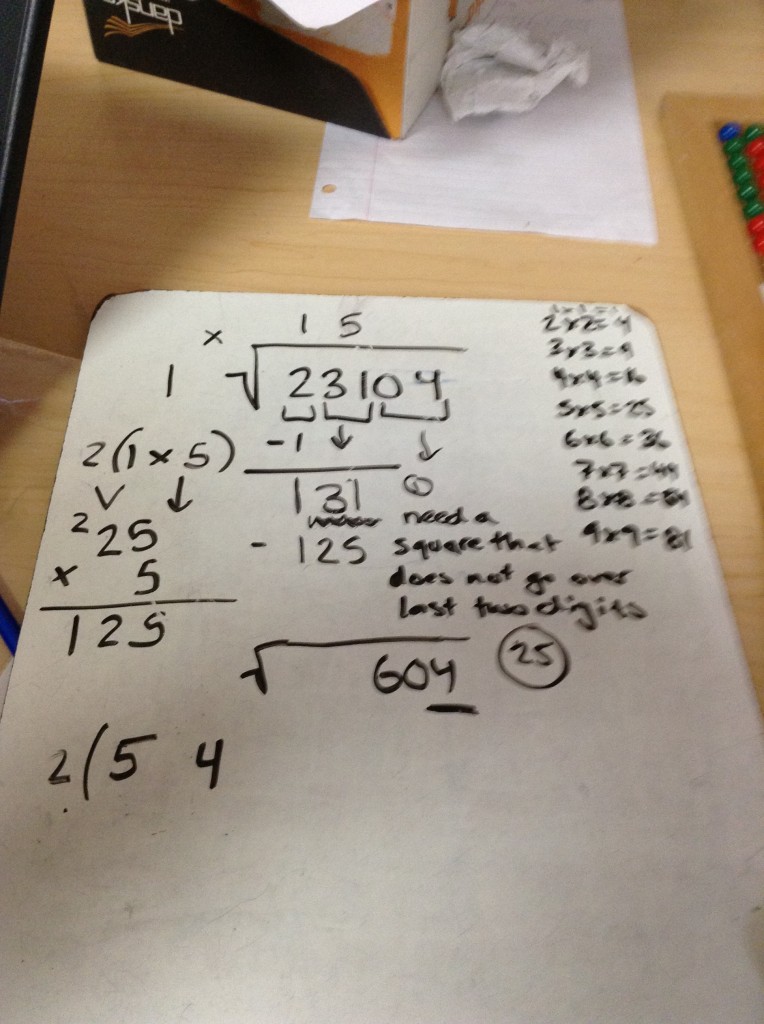 dansk
× 1 5
1 √23104
2(1 × 5) -1 ↓ ↓
131
need a
²25 - 125 square that
× 5 does not go over
last two digits
125
√604 25
2(5 4
2×2=4
3×3=9
4×4=16
5×5=25
6×6=36
7×7=49
8×8=64
9×9=81